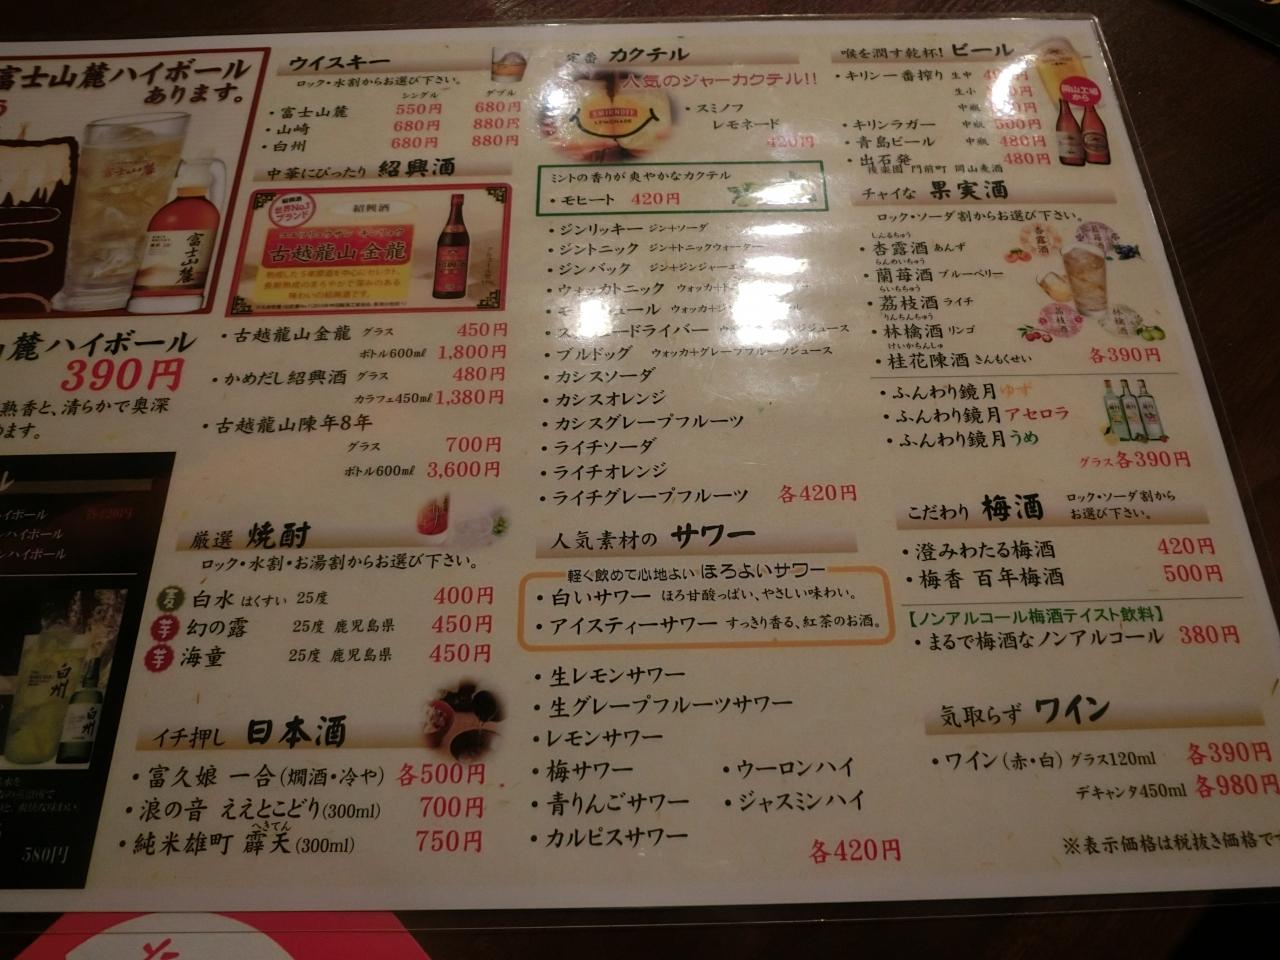 富士山麓ハイボール
あります。
麓ハイボール
390円
熟香と、清らかで奥深
めます。
ハイボール
ハイボール
白州
580円
ウイスキー
ロック・水割からお選び下さい。
シングル ダブル
・富士山麓 550円 680円
・山崎 680円 880円
・白州 680円 880円
中華にぴったり 紹興酒
紹興酒
世界No.1
ブランド
紹興酒
古越龍山金龍
熟成した5年原酒を中心にセレクト。
長期熟成のまろやかで深みのある
味わいの紹興酒です。
・古越龍山金龍 グラス 450円
ボトル600㎖ 1,800円
・かめだし紹興酒 グラス 480円
カラフェ450㎖ 1,380円
・古越龍山陳年8年
グラス 700円
ボトル600㎖ 3,600円
厳選 焼酎
ロック・水割・お湯割からお選び下さい。
麦 白水 はくすい 25度 400円
芋 幻の露 25度 鹿児島県 450円
芋 海童 25度 鹿児島県 450円
イチ押し 日本酒
・富久娘 一合(燗酒・冷や) 各500円
・浪の音 ええとこどり(300ml) 700円
へきてん
・純米雄町 霹天(300ml) 750円
定番 カクテル
人気のジャーカクテル!!
SMIRNOFF
LEMONADE
・スミノフ
レモネード
420円
ミントの香りが爽やかなカクテル
・モヒート 420円
・ジンリッキー ジン+ソーダ
・ジントニック ジン+トニックウォーター
・ジンバック ジン+ジンジャーエ
・ウォッカトニック ウォッカ+
ウォッカ+
ドライバー
・ブルドッグ ウォッカ+グレープフルーツジュース
・カシスソーダ
・カシスオレンジ
・カシスグレープフルーツ
・ライチソーダ
・ライチオレンジ
・ライチグレープフルーツ 各420円
人気素材の サワー
軽く飲めて心地よい ほろよいサワー
・白いサワー ほろ甘酸っぱい、やさしい味わい。
・アイスティーサワー すっきり香る、紅茶のお酒。
・生レモンサワー
・生グレープフルーツサワー
・レモンサワー
・梅サワー ・ウーロンハイ
・青りんごサワー ・ジャスミンハイ
・カルピスサワー
各420円
喉を潤す乾杯! ビール
・キリン一番搾り 生中
生小
中瓶
岡山工場
から
・キリンラガー 中瓶 500円
・青島ビール 中瓶 480円
・出石発 480円
後楽園 門前町 岡山麦酒
チャイな 果実酒
ロック・ソーダ割からお選び下さい。
しんるちゅう
・杏露酒 あんず
らんめいちゅう
・蘭苺酒 ブルーベリー
らいちちゅう
・茘枝酒 ライチ
りんちんちゅう
・林檎酒 リンゴ
けいかちんしゅ
・桂花陳酒 きんもくせい 各390円
・ふんわり鏡月ゆず
・ふんわり鏡月アセロラ
・ふんわり鏡月うめ
グラス各390円
こだわり 梅酒 ロック・ソーダ割から
お選び下さい。
・澄みわたる梅酒 420円
・梅香 百年梅酒 500円
【ノンアルコール梅酒テイスト飲料】
・まるで梅酒なノンアルコール 380円
気取らず ワイン
・ワイン(赤・白) グラス120ml 各390円
デキャンタ450ml 各980円
※表示価格は税抜き価格で